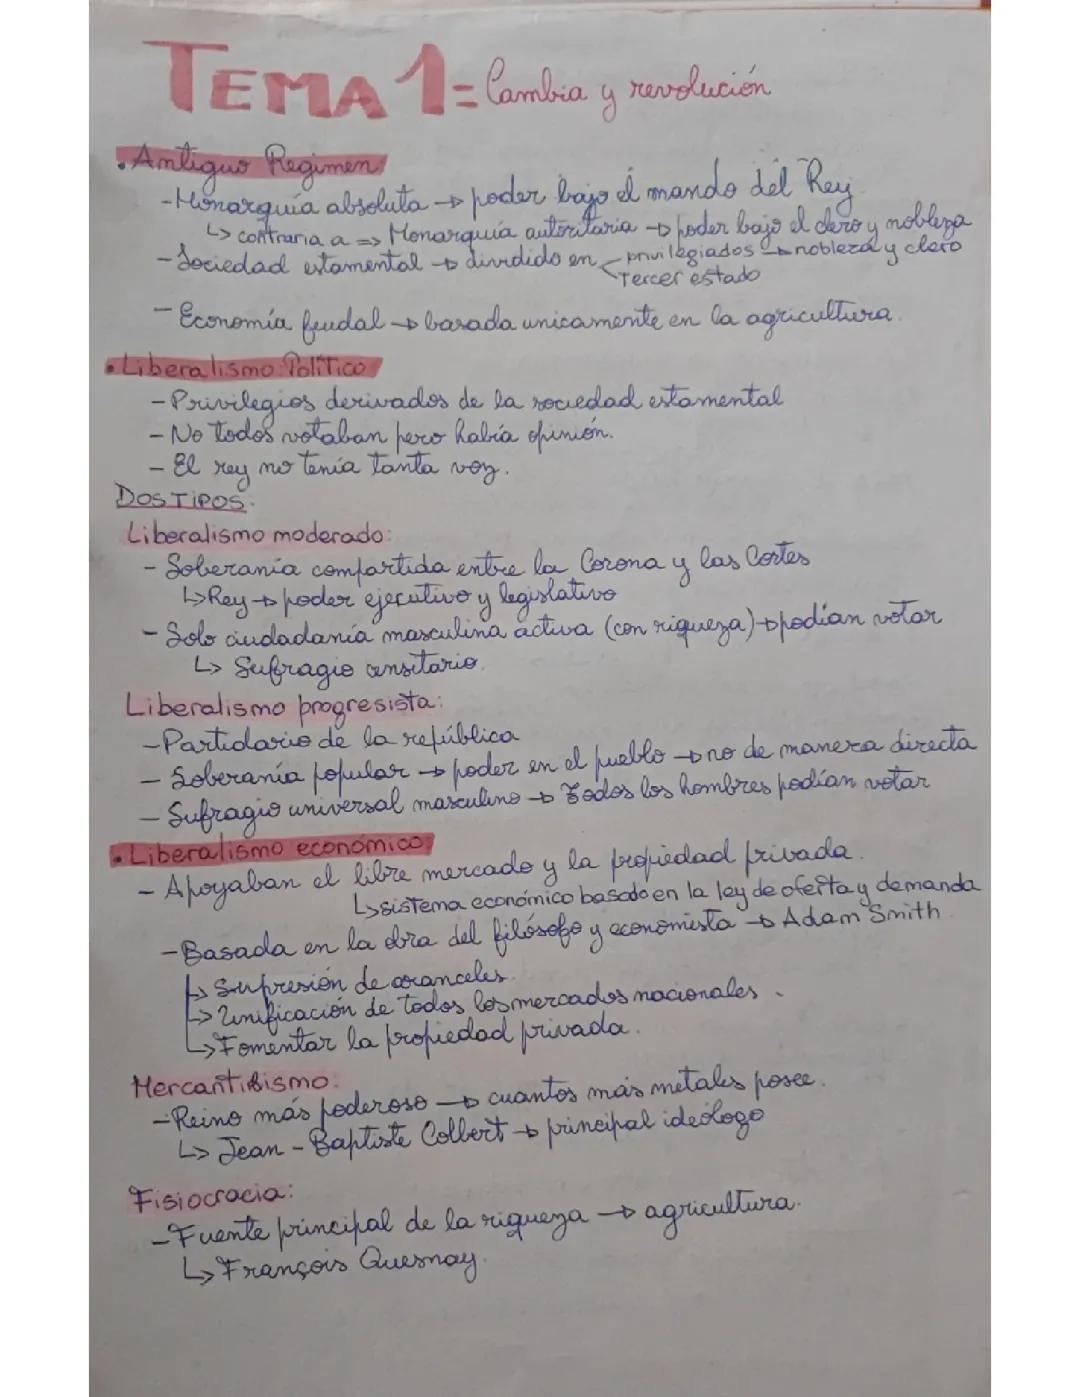 TEMA 1= Cambia y revolución
• Antiguo Regimen:
- Monarquía absoluta → poder bajo el mando del Rey
↳ contraria a => Monarquía autoritaria → poder bajo el clero y nobleza
- Sociedad estamental → dividido en privilegiados → nobleza y clero
Tercer estado
- Economía feudal → basada unicamente en la agricultura.
• Liberalismo Político
- Privilegios derivados de la sociedad estamental
- No todos votaban pero había opinión.
- El rey no tenía tanta voz.
DOS TIPOS:
Liberalismo moderado:
- Soberanía compartida entre la Corona y las Cortes
↳ Rey → poder ejecutivo y legislativo
- Solo ciudadanía masculina activa (con riqueza) → podían votar
↳ Sufragio censitario.
Liberalismo progresista:
- Partidario de la república
- Soberanía popular → poder en el pueblo → no de manera directa
- Sufragio universal masculino → Todos los hombres podían votar
• Liberalismo económico:
- Apoyaban el libre mercado y la propiedad privada.
↳ sistema económico basado en la ley de oferta y demanda
- Basada en la obra del filósofo y economista → Adam Smith
↳ Supresión de aranceles.
↳ Unificación de todos los mercados nacionales.
↳ Fomentar la propiedad privada.
Mercantilismo:
- Reino más poderoso → cuantos más metales posee.
↳ Jean-Baptiste Colbert → principal ideólogo
Fisiocracia:
- Fuente principal de la riqueza → agricultura.
↳ François Quesnay.